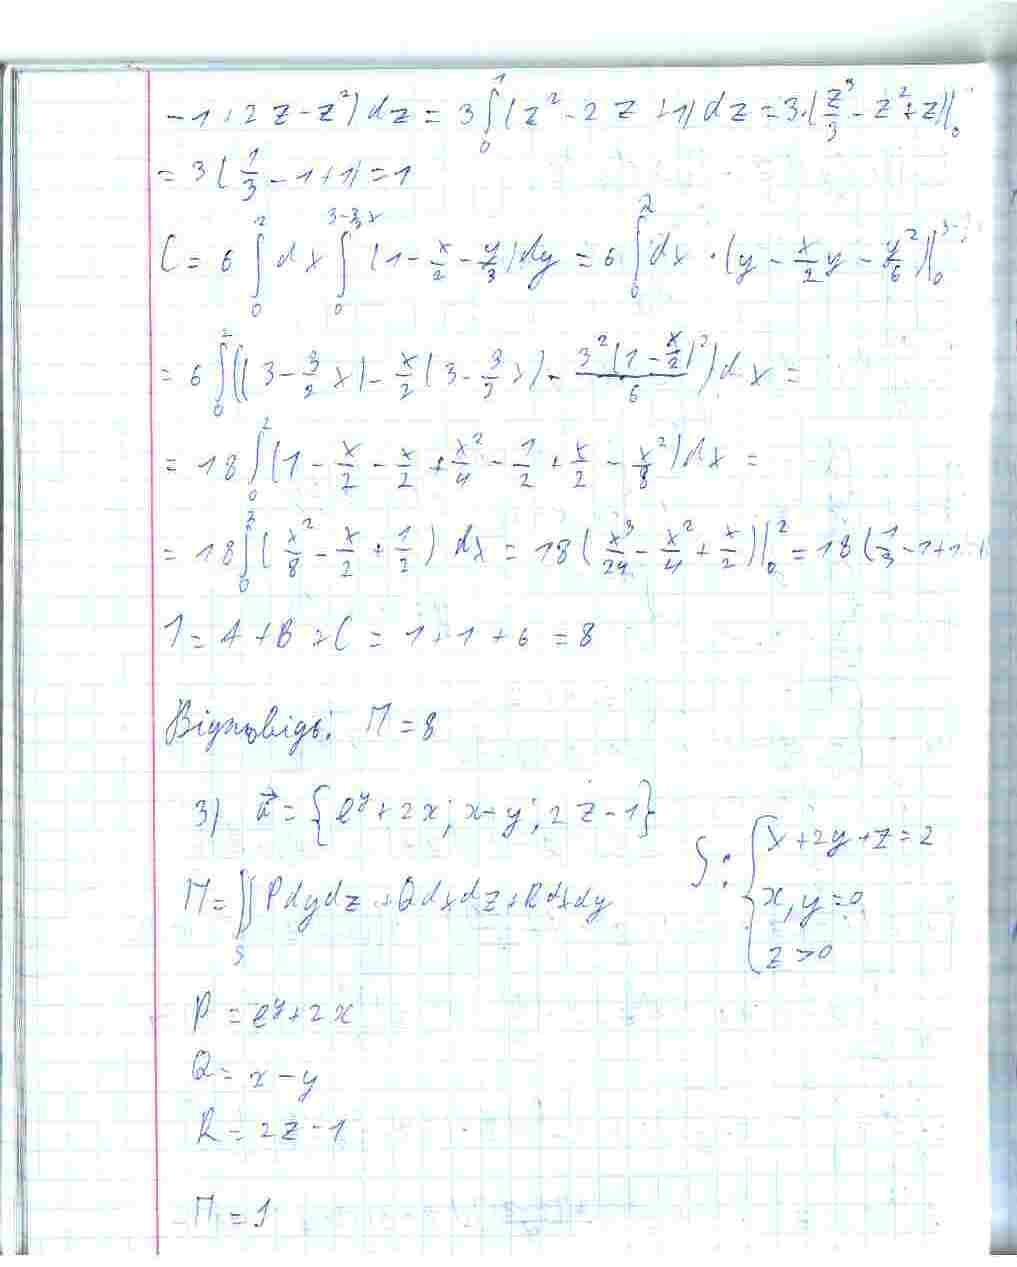 -1+2z-z²)dz = 3∫₀¹(z²-2z+1)dz = 3·(z³/3-z²+z)|₀
= 3(1/3-1+1)=1
C = 6∫₀²dx∫₀^(3-3/2x)(1-x/2-y/3)dy = 6∫₀²dx·(y-x/2y-y²/6)|₀^3-
= 6∫₀²((3-3/2x)-x/2(3-3/2x)-3²(1-x/2)²/6)dx =
= 18∫₀²(1-x/2-x/2+x²/4-1/2+x/2-x²/8)dx =
= 18∫₀²(x²/8-x/2+1/2)dx = 18(x³/24-x²/4+x/2)|₀² = 18(1/3-1+1
I = A+B+C = 1+1+6 = 8
Відповідь: П = 8
3) a⃗ = {e^y+2x; x-y; 2z-1}
S: { x+2y+z=2
x,y=0
z>0
П = ∬_S Pdydz+Qdxdz+Rdxdy
P = e^y+2x
Q = x-y
R = 2z-1
П = 1